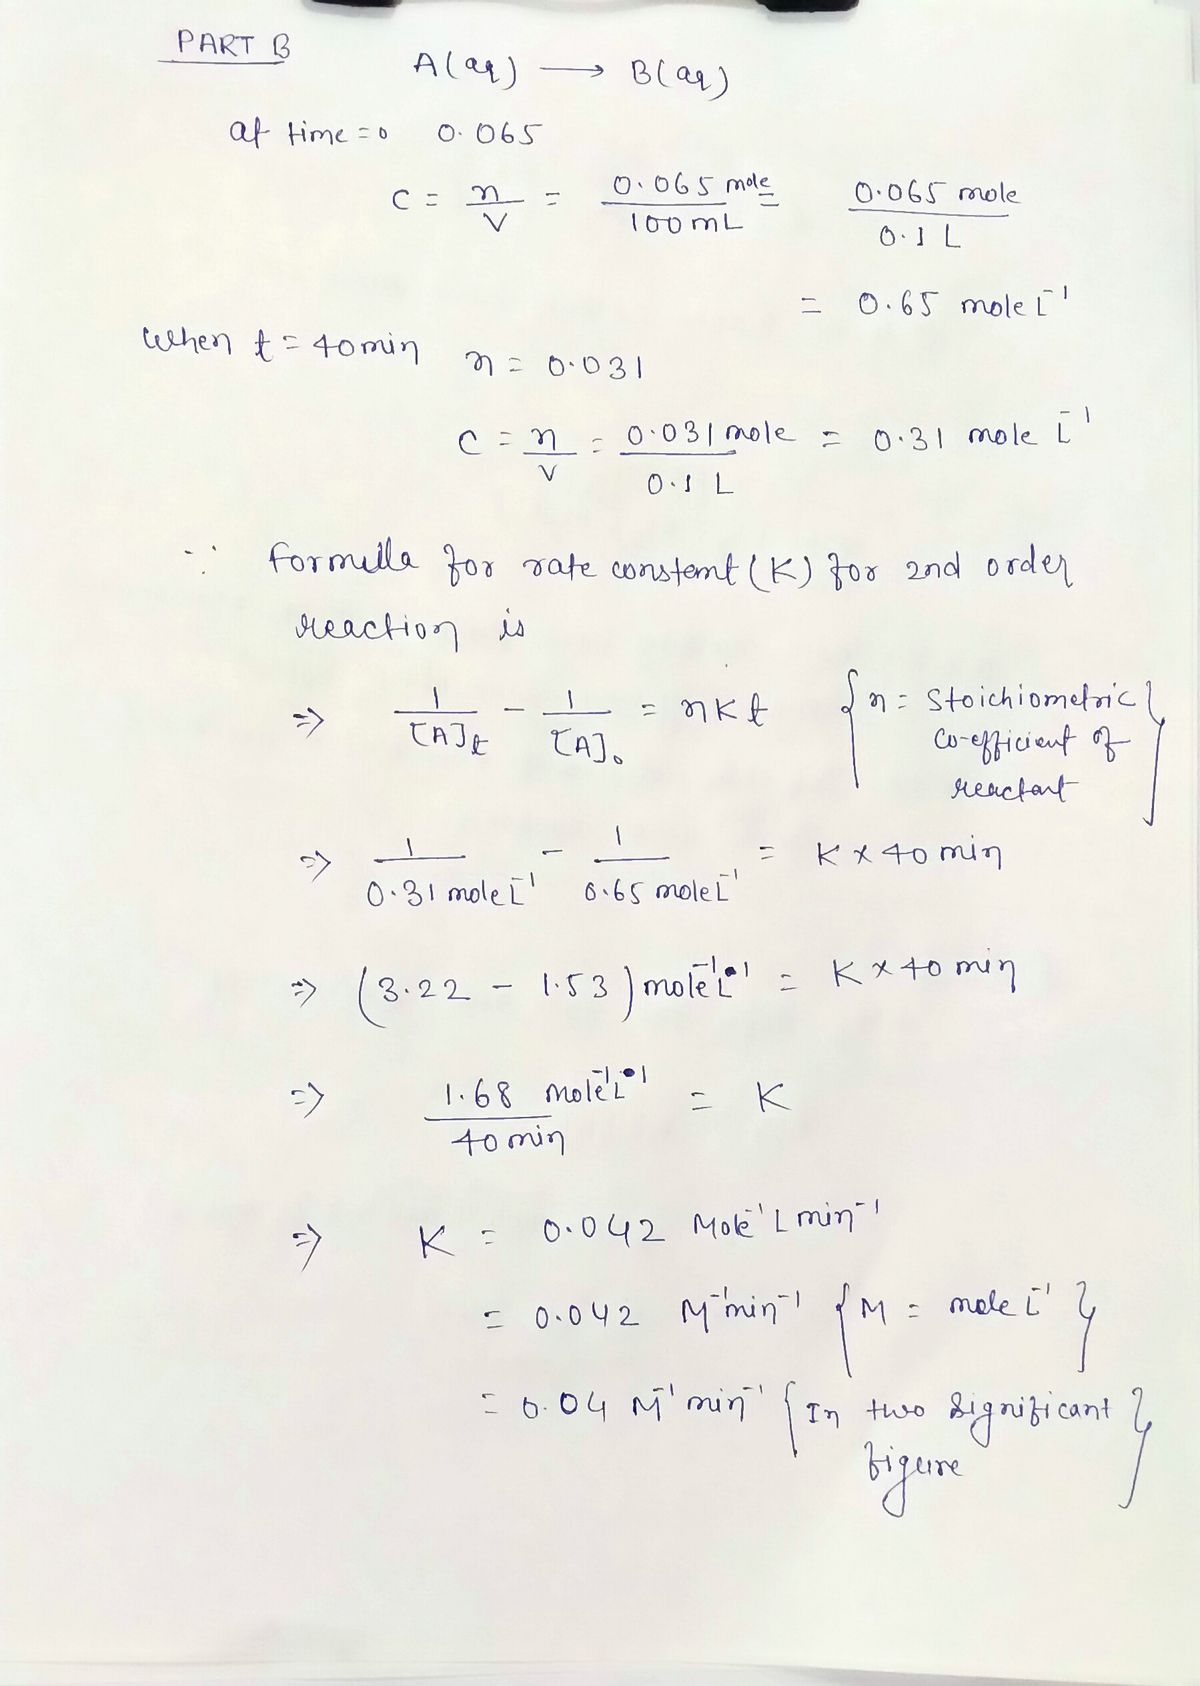 PART B
A(aq) ⟶ B(aq)
at time = 0 0.065
C = n/V = 0.065 mole/100 mL = 0.065 mole/0.1 L
= 0.65 mole L⁻¹
When t = 40 min n = 0.031
C = n/V = 0.031 mole/0.1 L = 0.31 mole L⁻¹
∵ formula for rate constant (K) for 2nd order
reaction is
⇒ 1/[A]t - 1/[A]₀ = nKt {n = Stoichiometric
Co-efficient of
reactant}
⇒ 1/0.31 mole L⁻¹ - 1/0.65 mole L⁻¹ = K × 40 min
⇒ (3.22 - 1.53) mole⁻¹ L¹ = K × 40 min
⇒ 1.68 mole⁻¹ L¹/40 min = K
⇒ K = 0.042 Mole⁻¹ L min⁻¹
= 0.042 M⁻¹ min⁻¹ {M = mole L⁻¹}
= 0.04 M⁻¹ min⁻¹ {In two significant
figure}